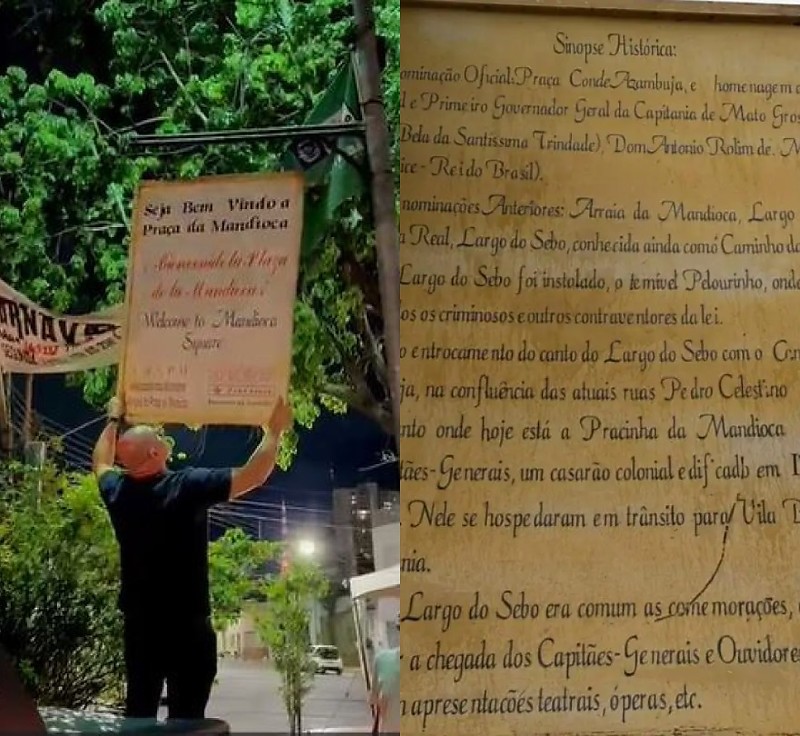 Seja Bem Vindo a
Praça da Mandioca
Bienvenido la Plaza
de la Mandioca!
Welcome to Mandioca
Square
Sinopse Histórica:
ominação Oficial:Praça Conde Azambuja, e homenagem
l e Primeiro Governador Geral da Capitania de Mato Gros
Bela da Santíssima Trindade), Dom Antonio Rolim de. M
ice-Rei do Brasil).
nominações Anteriores: Arraia da Mandioca, Largo
a Real, Largo do Sebo, conhecida ainda como Caminho d
Largo do Sebo foi instalado, o temível Pelourinho, onde
os os criminosos e outros contraventores da lei.
o entrocamento do canto do Largo do Sebo com o
ja, na confluência das atuais ruas Pedro Celestino
nto onde hoje está a Pracinha da Mandioca
tães-Generais, um casarão colonial edificado em
. Nele se hospedaram em trânsito para Vila
nia.
Largo do Sebo era comum as comemorações,
a chegada dos Capitães-Generais e Ouvidores
apresentacões teatrais, óperas, etc.